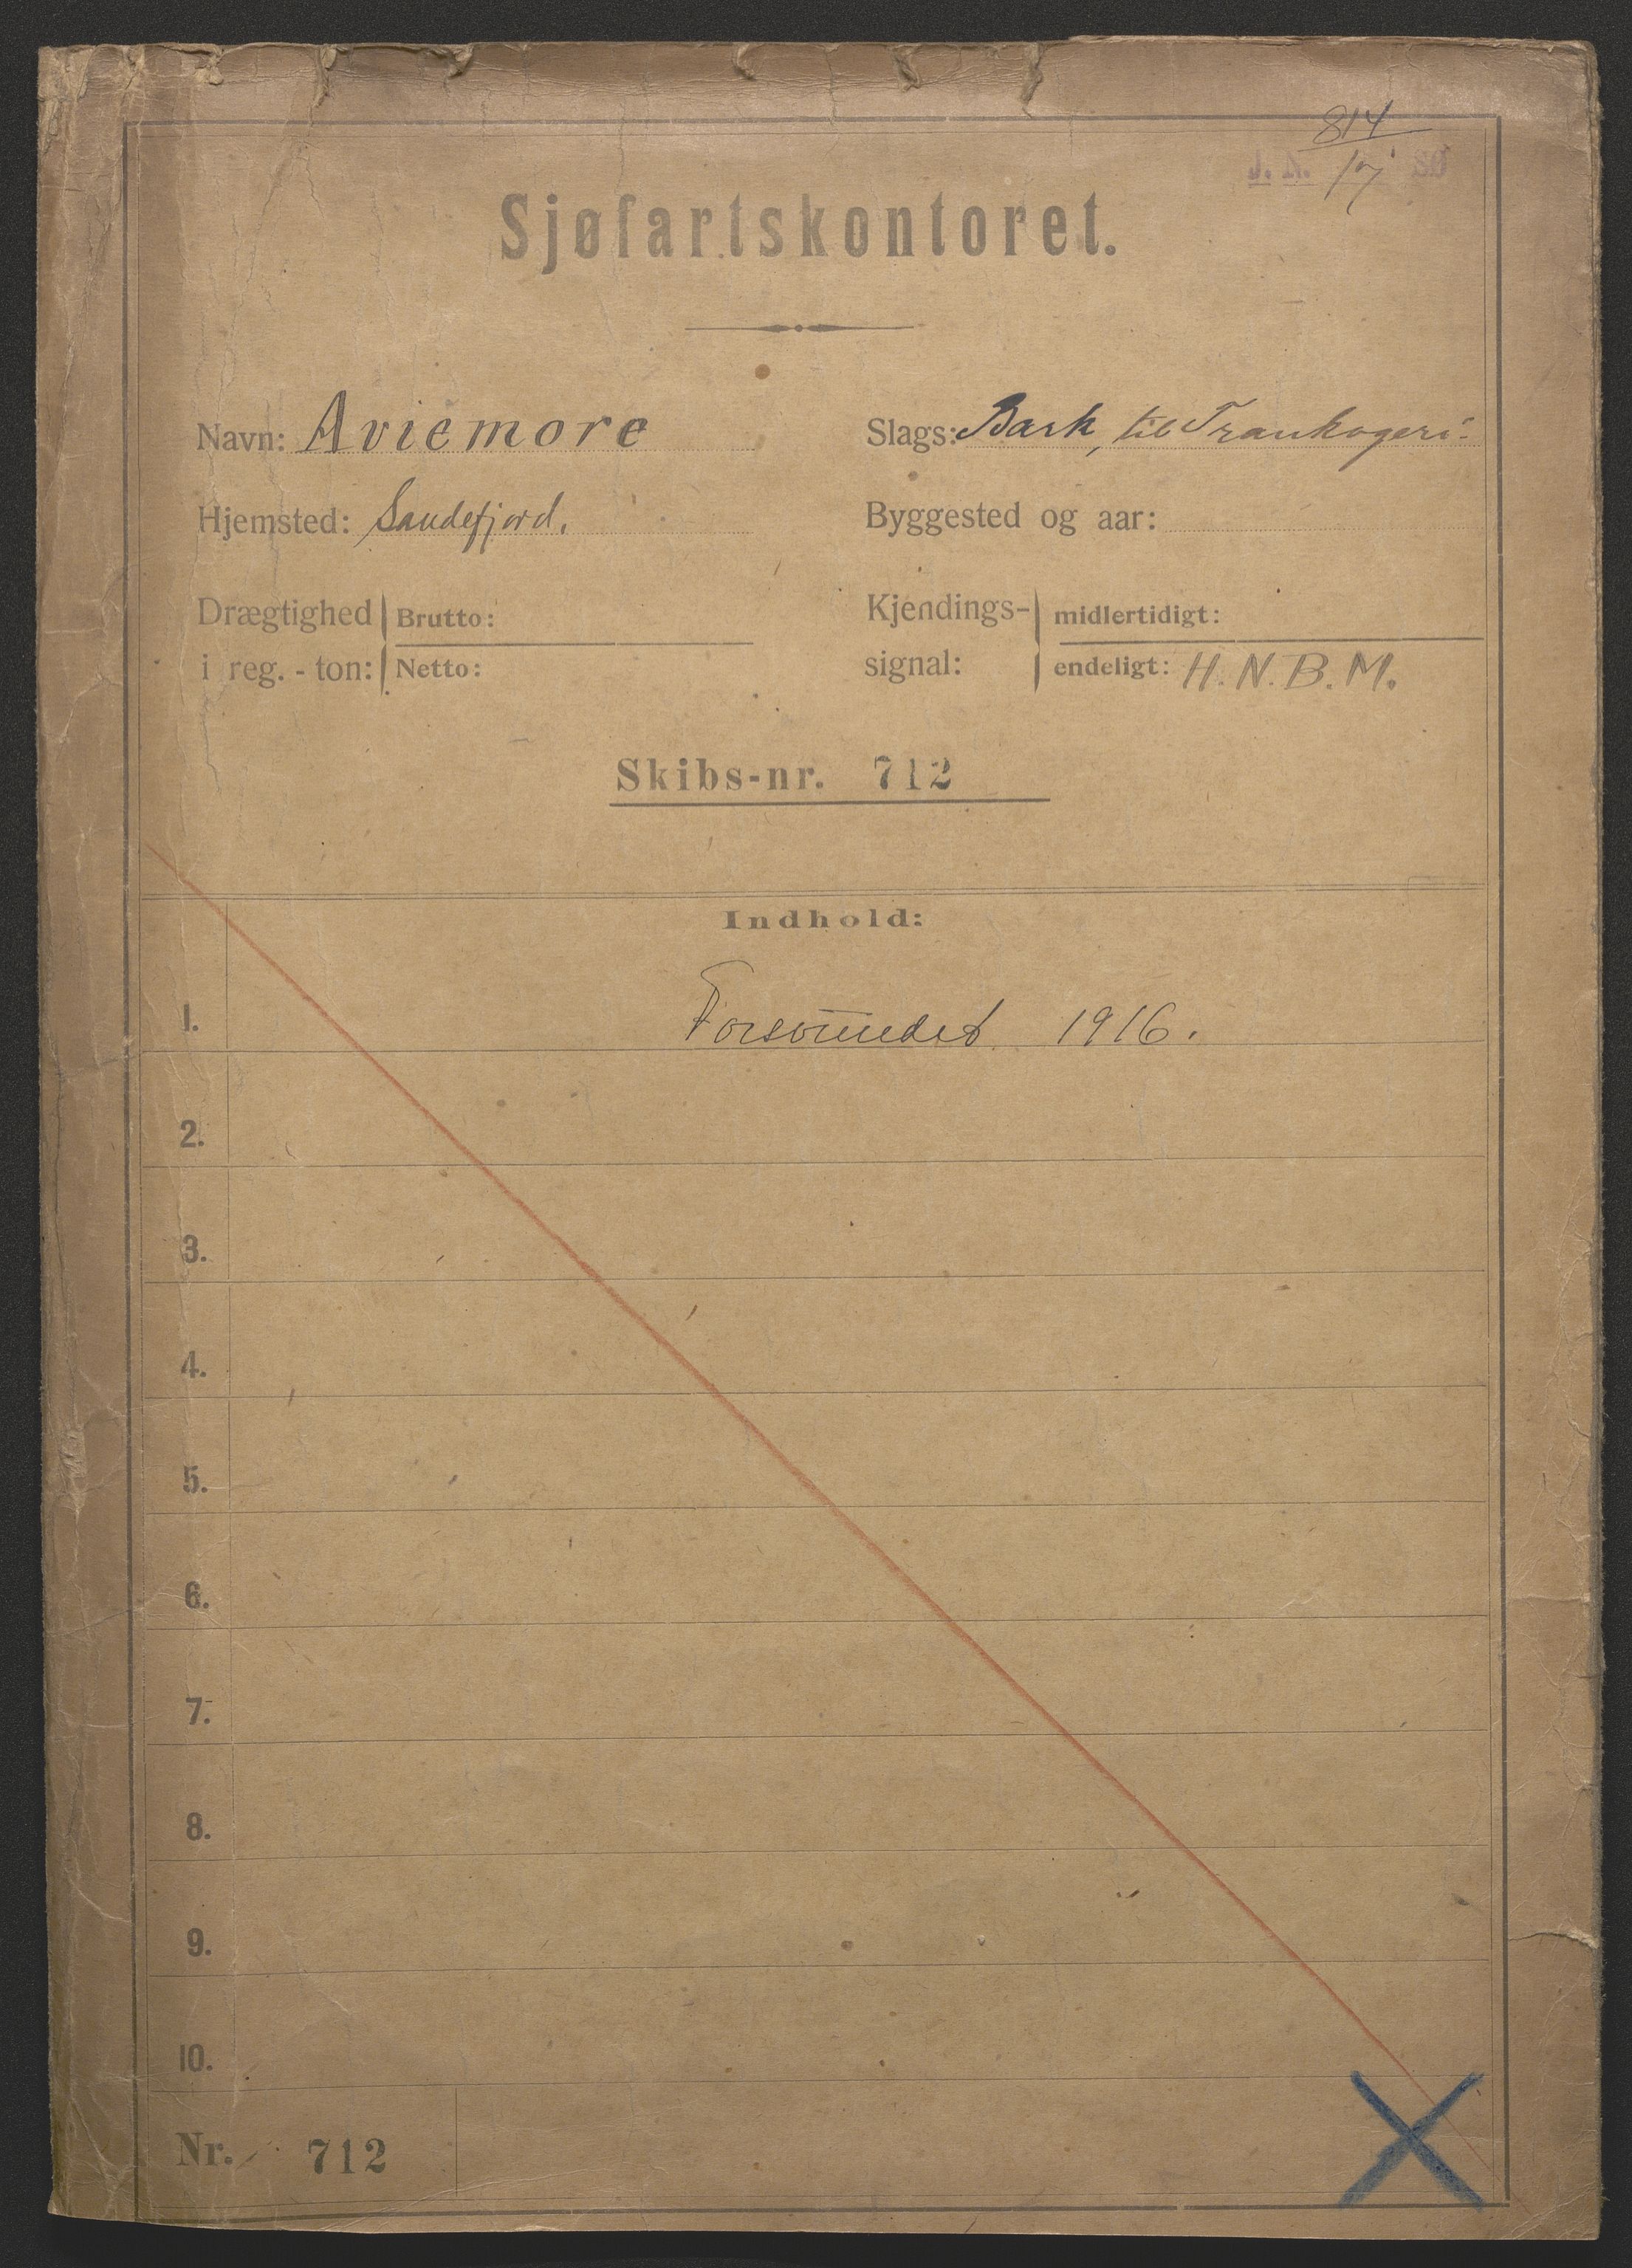 814
J. N. 17
Sjøfartskontoret.
Navn: Aviemore
Slags: Bark, til Trankogeri.
Hjemsted: Sandefjord.
Byggested og aar:
Drægtighed i reg. - ton:
Brutto:
Netto:
Kjendings-signal:
midlertidigt:
endeligt: H. N. B. M.
Skibs-nr. 712
Indhold:
1. Forsvundet 1916.
2.
3.
4.
5.
6.
7.
8.
9.
10.
Nr. 712